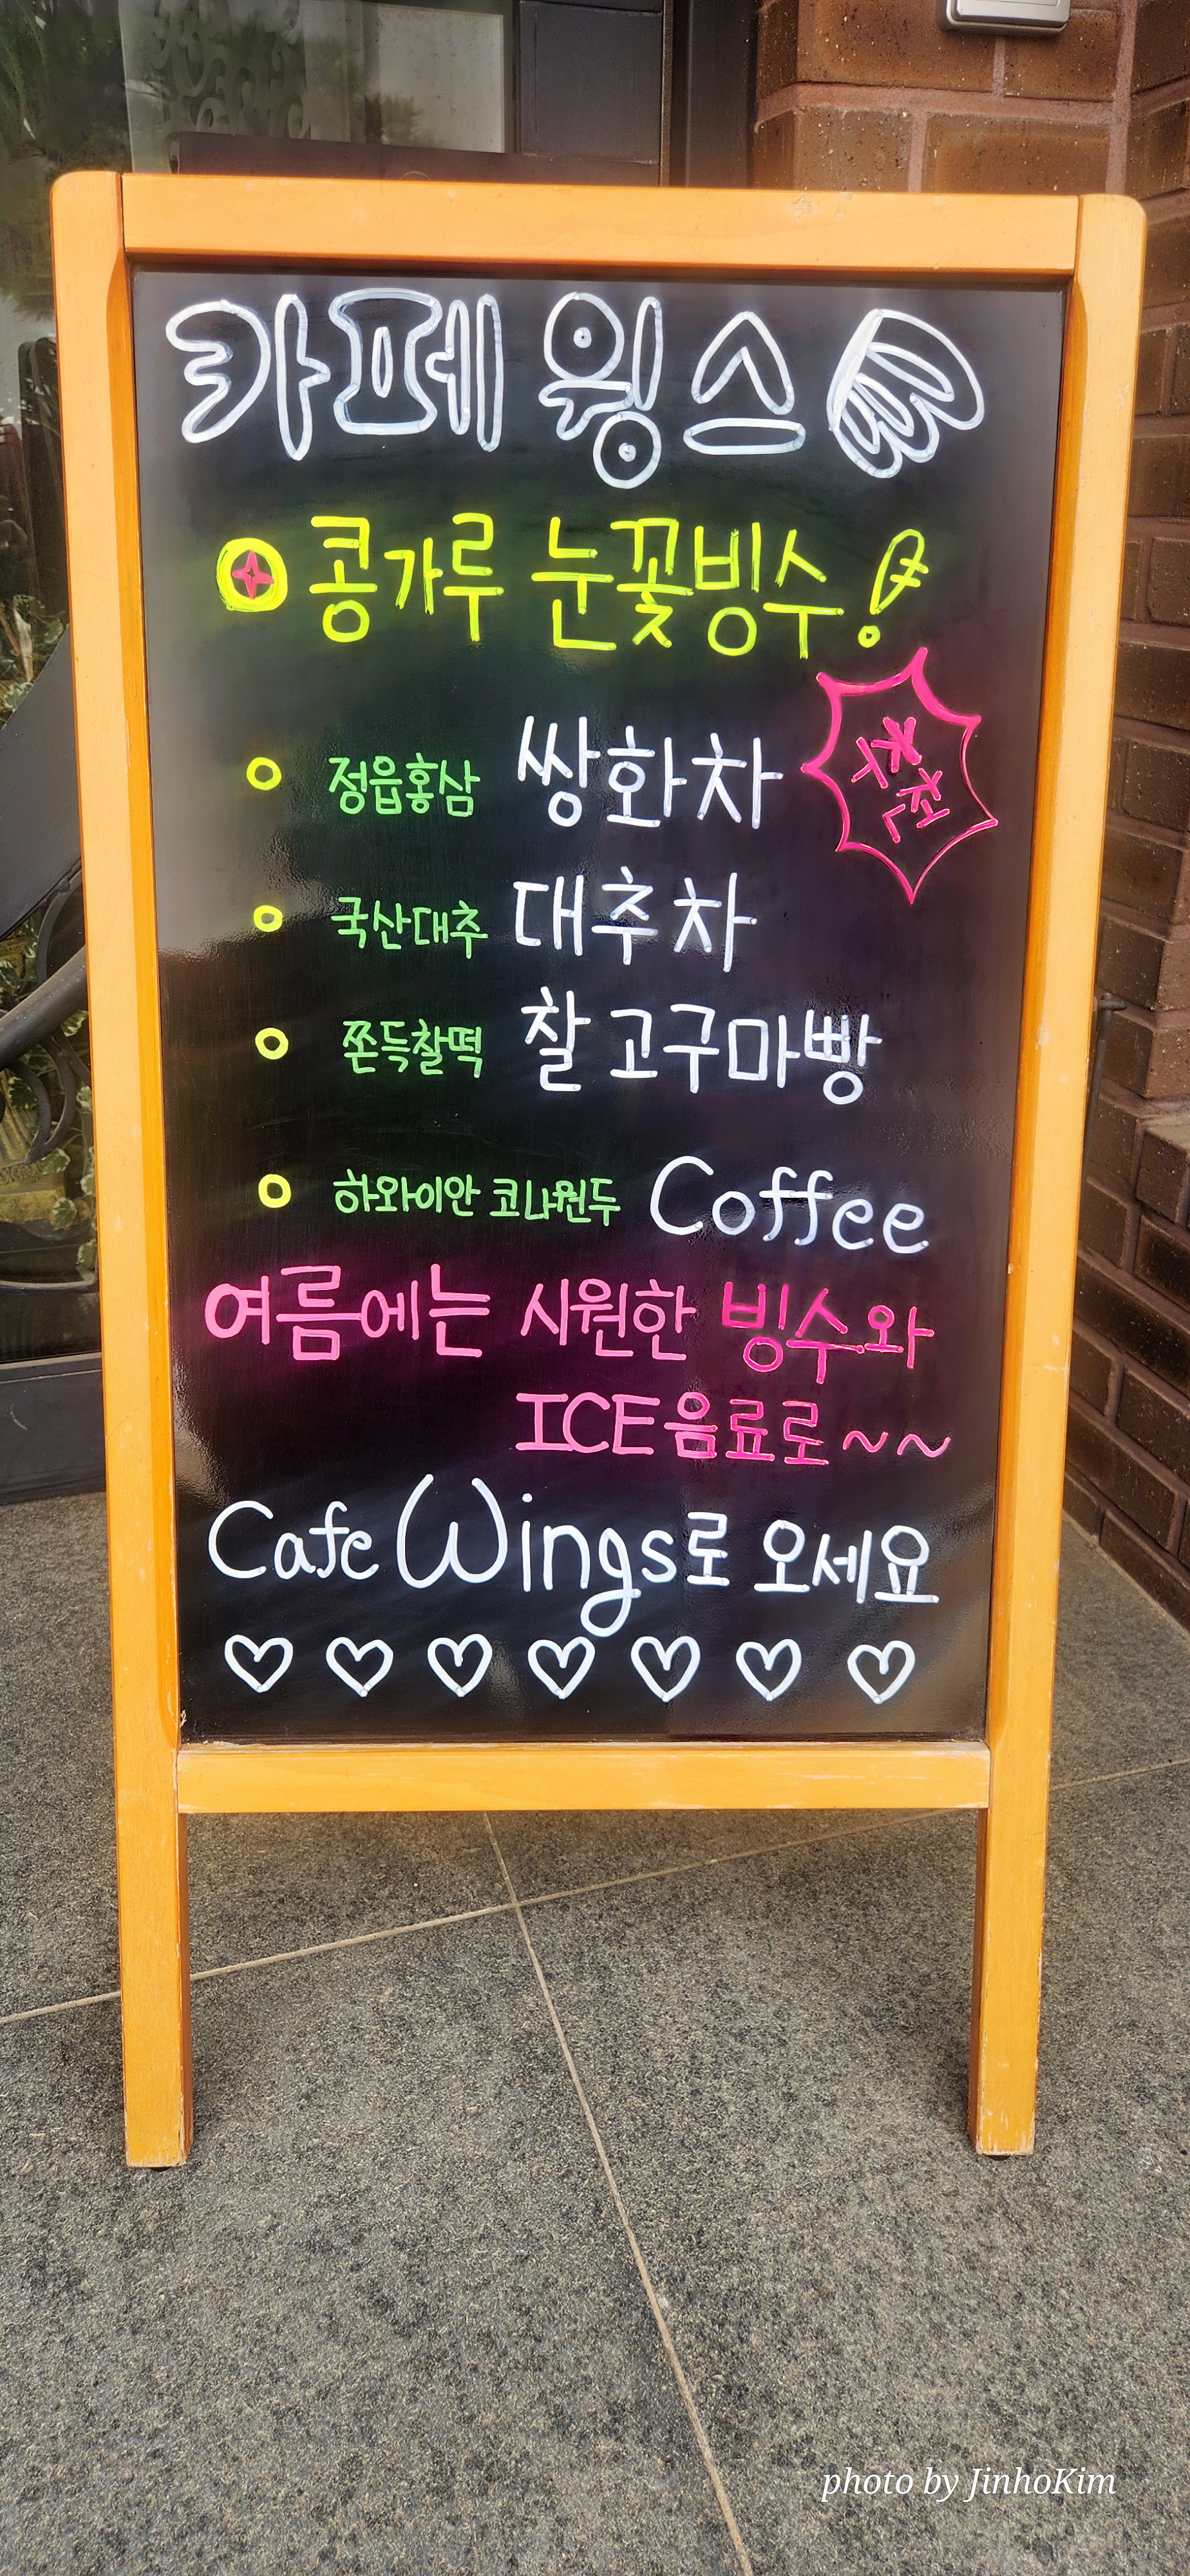 카페 윙스
콩가루 눈꽃빙수!
정읍홍삼 쌍화차
추천
국산대추 대추차
쫀득찰떡 찰고구마빵
하와이안 코나원두 Coffee
여름에는 시원한 빙수와
ICE 음료로~~
Cafe Wings로 오세요
photo by JinhoKim